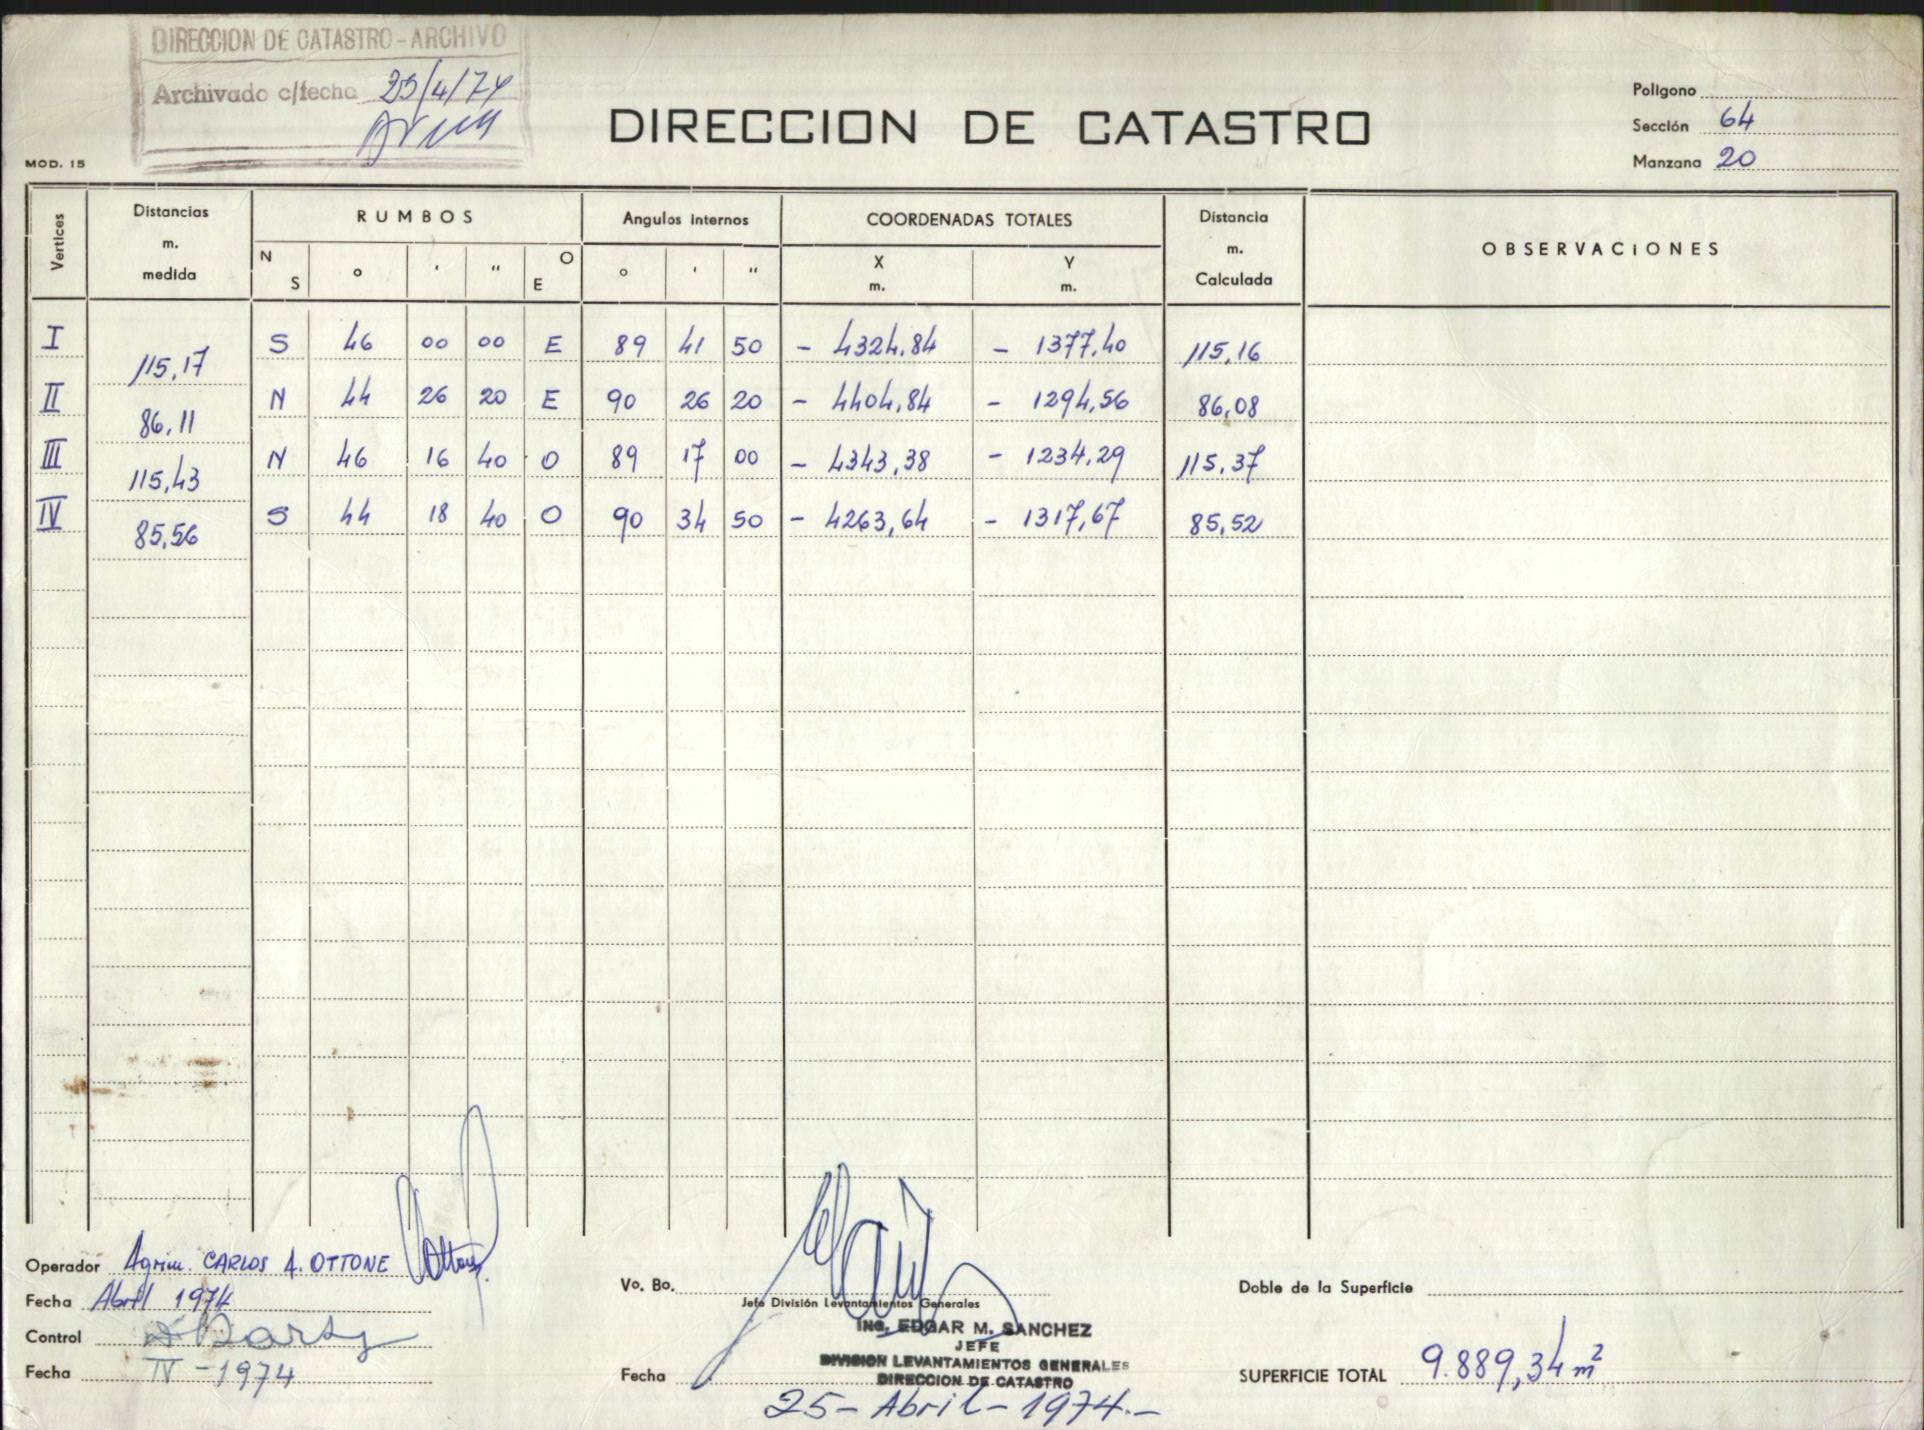 DIRECCION DE CATASTRO - ARCHIVO
Archivado c/fecha 25/4/74
DIRECCION DE CATASTRO
Poligono
Sección 64
Manzana 20
MOD. 15
Vertices Distancias m. medida RUMBOS Angulos internos COORDENADAS TOTALES Distancia m. Calculada OBSERVACIONES
N S o ' " O E o ' " X m. Y m.
I 115,17 S 46 00 00 E 89 41 50 - 4324,84 - 1377,40 115,16
II 86,11 N 44 26 20 E 90 26 20 - 4404,84 - 1294,56 86,08
III 115,43 N 46 16 40 O 89 17 00 - 4343,38 - 1234,29 115,37
IV 85,56 S 44 18 40 O 90 34 50 - 4263,64 - 1317,67 85,52
Operador Agrim. CARLOS A. OTTONE
Fecha Abril 1974
Control
Fecha IV - 1974
Vo. Bo.
Jefe División Levantamientos Generales
ING. EDGAR M. SANCHEZ
JEFE
DIVISION LEVANTAMIENTOS GENERALES
DIRECCION DE CATASTRO
Fecha 25 - Abril - 1974.-
Doble de la Superficie
SUPERFICIE TOTAL 9.889,34 m²